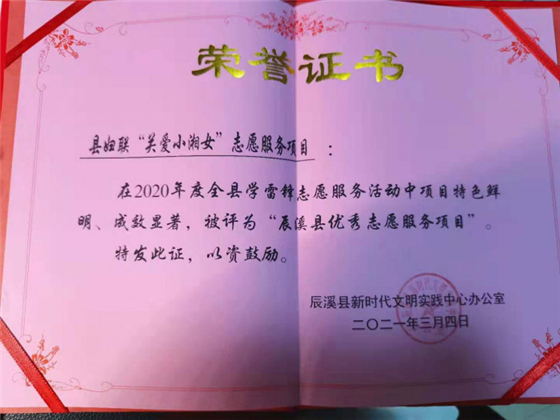 荣誉证书
县妇联“关爱小湘女”志愿服务项目：
在2020年度全县学雷锋志愿服务活动中项目特色鲜
明、成效显著，被评为“辰溪县优秀志愿服务项目”。
特发此证，以资鼓励。
辰溪县新时代文明实践中心办公室
二〇二一年三月四日